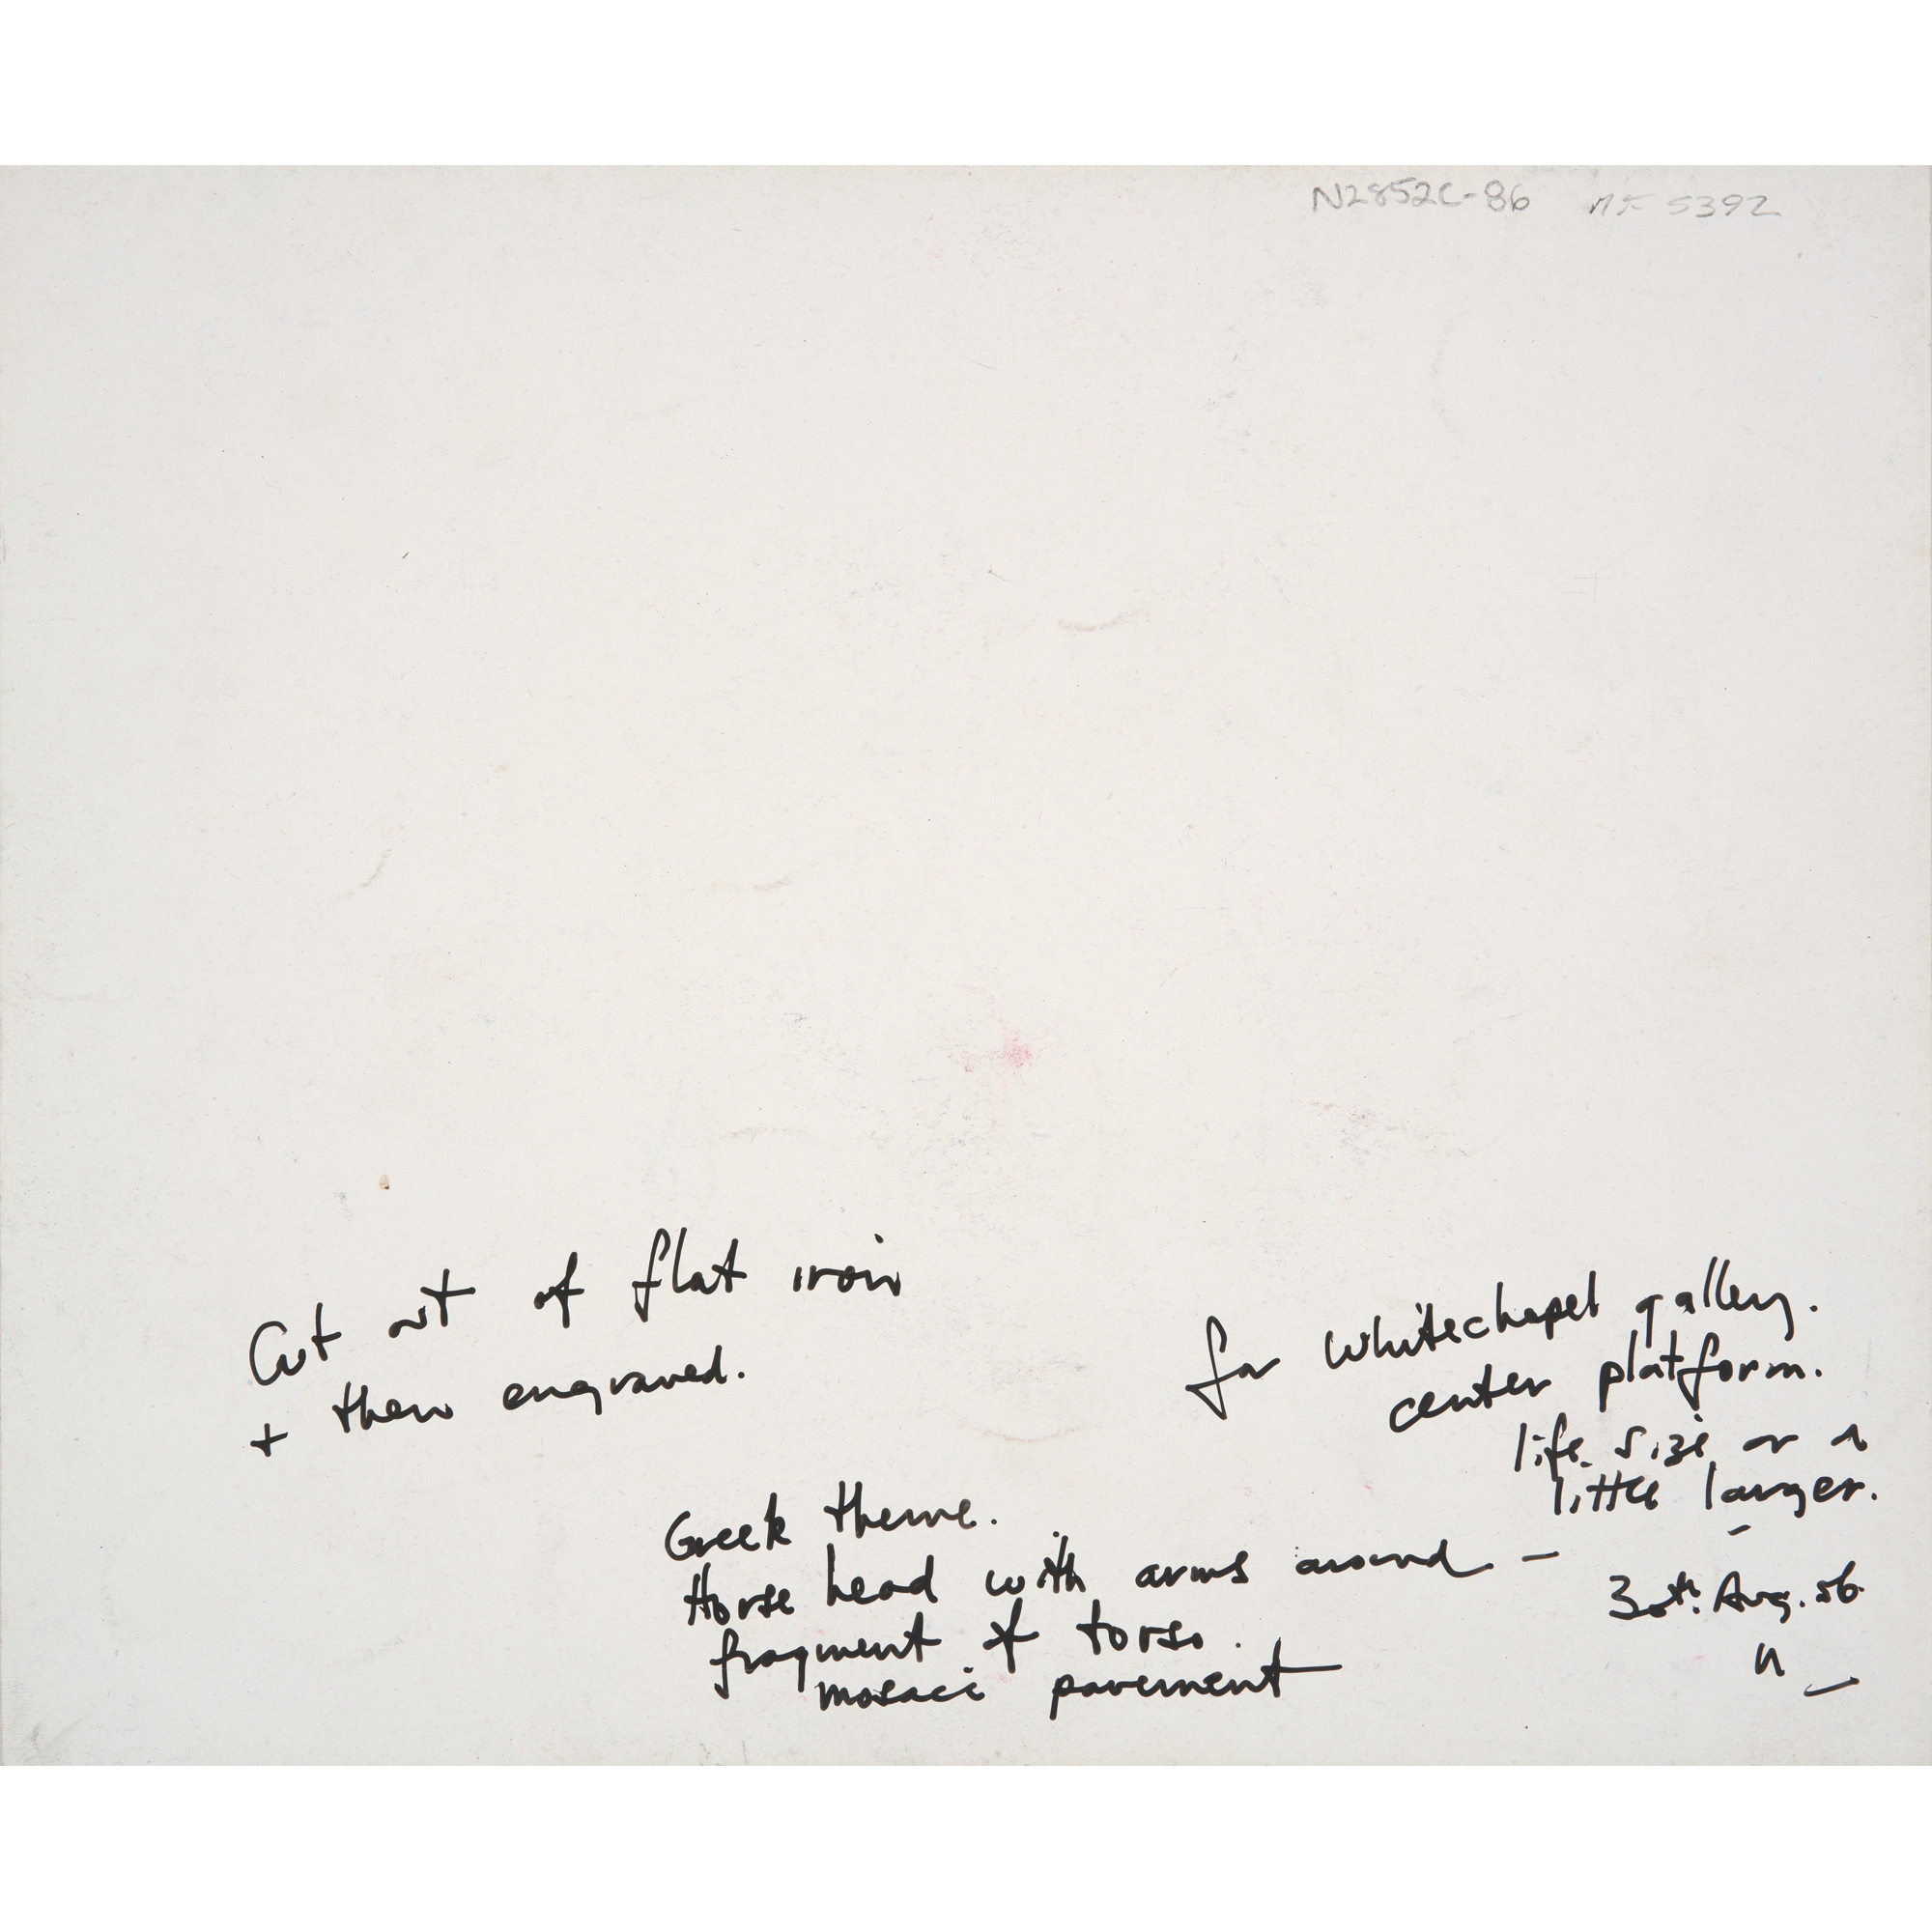 N2852C-86 MF 5392
Cut out of flat iron
+ then engraved.
for Whitechapel gallery.
center platform.
life size or a
little larger.
-
Greek theme.
Horse head with arms around -
fragment of torso.
mosaic pavement
30th. Aug. 86.